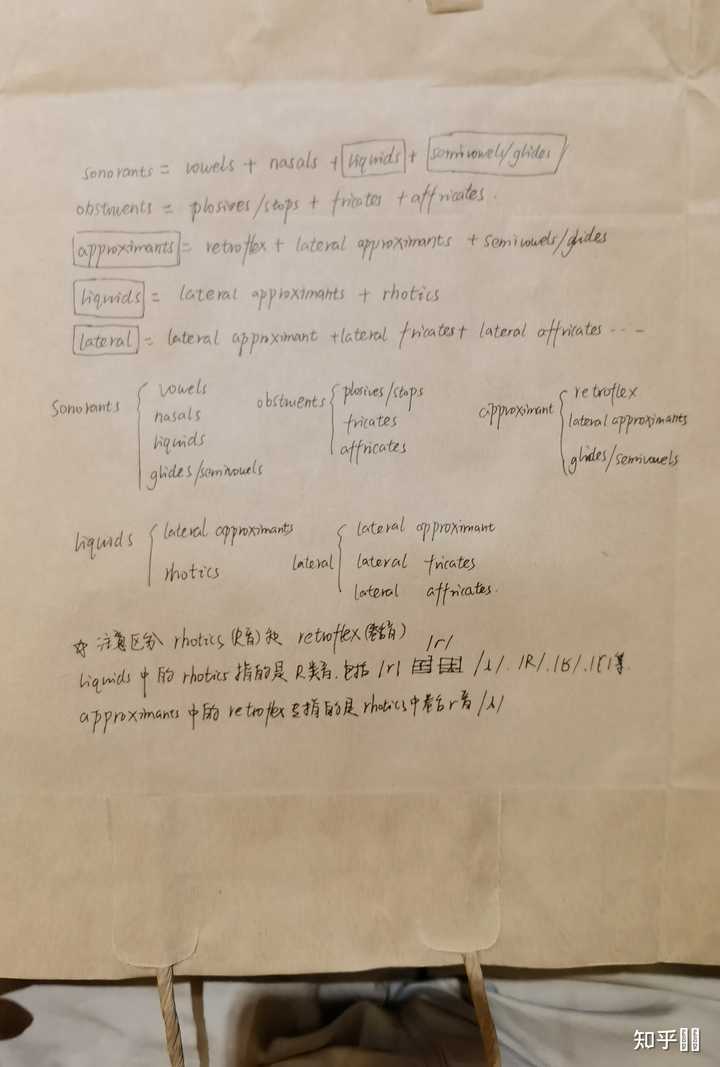 sonorants = vowels + nasals + liquids + semivowels/glides
obstruents = plosives/stops + fricates + affricates.
approximants = retroflex + lateral approximants + semivowels/glides
liquids = lateral approximants + rhotics
lateral = lateral approximant + lateral fricates + lateral affricates ···-
sonorants { vowels
nasals
liquids
glides/semivowels
obstruents { plosives/stops
fricates
affricates
approximant { retroflex
lateral approximants
glides/semivowels
liquids { lateral approximants
rhotics
lateral { lateral approximant
lateral fricates
lateral affricates.
☆ 注意区分 rhotics (R音) 和 retroflex (卷舌音)
/r/
liquids 中的 rhotics 指的是 R类音, 包括 /r/ /ɹ/. /R/. /ʁ/. /ɽ/ 等
approximants 中的 retroflex 指的是 rhotics 中卷舌 r 音 /ɹ/
知乎